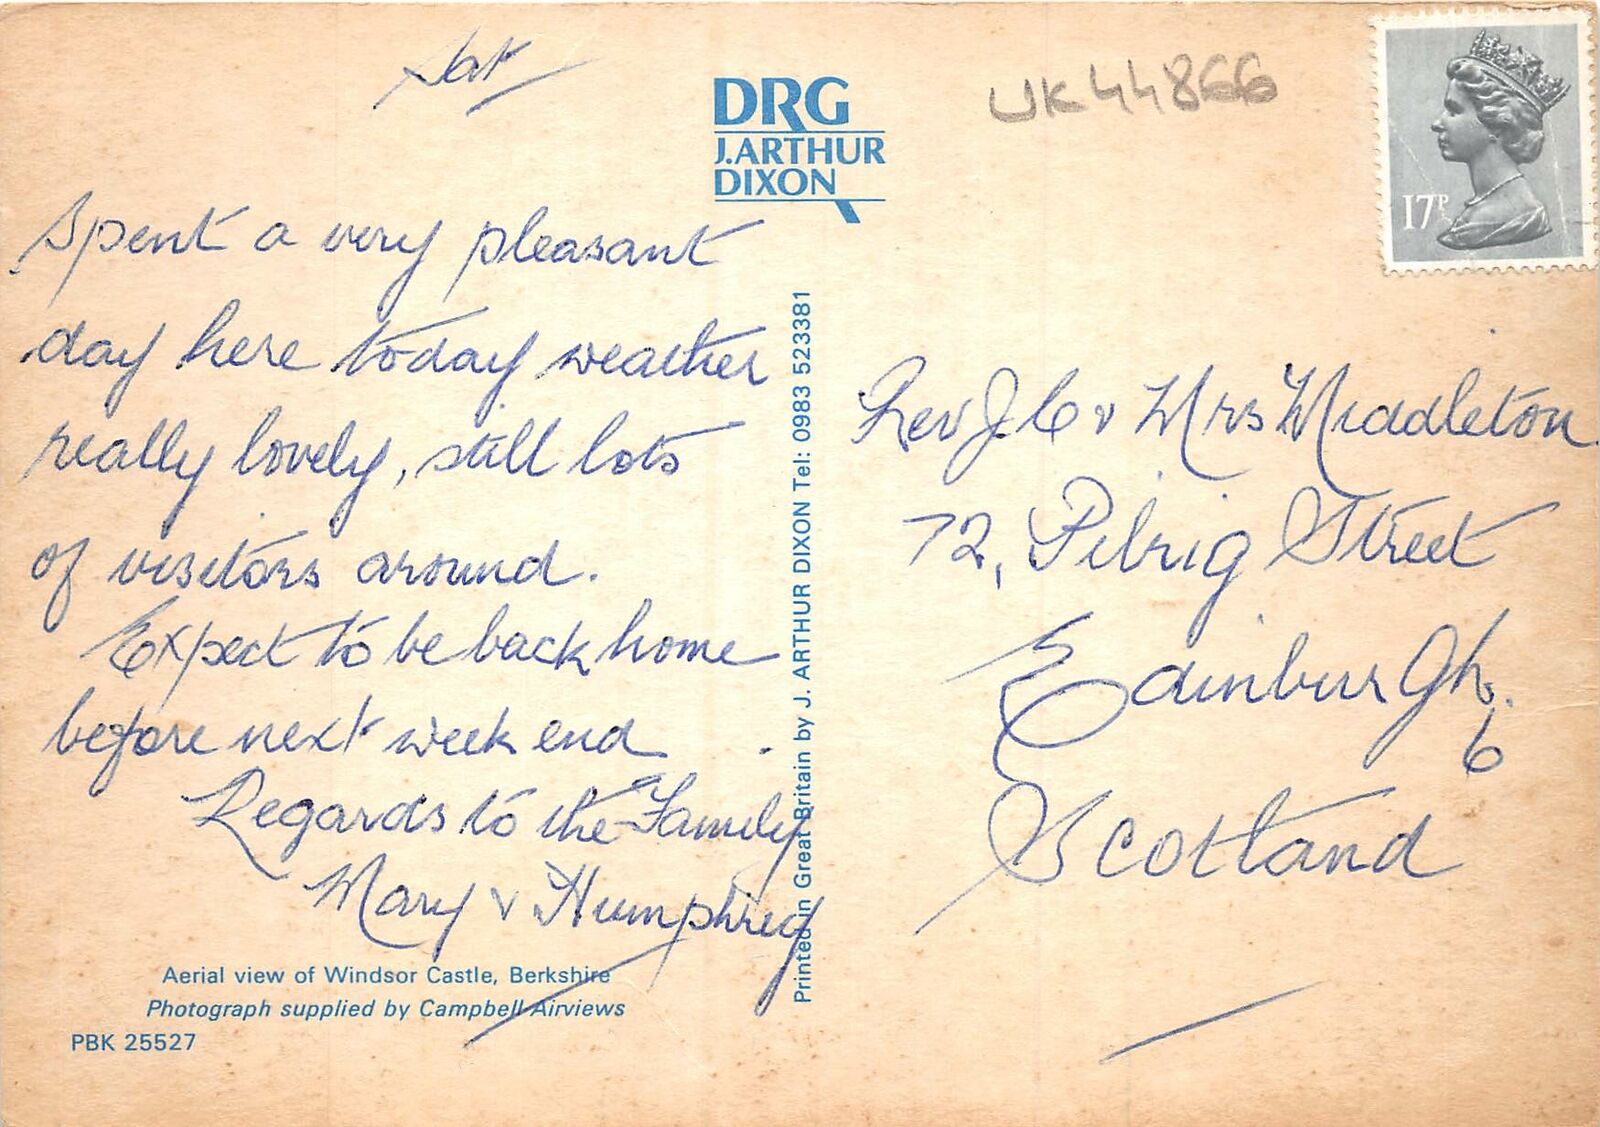 Sat
Spent a very pleasant
day here today weather
really lovely, still lots
of visitors around.
Expect to be back home
before next week end
Regards to the Family
Mary & Humphrey
Aerial view of Windsor Castle, Berkshire
Photograph supplied by Campbell Airviews
PBK 25527
DRG
J.ARTHUR
DIXON
Printed in Great Britain by J. ARTHUR DIXON Tel: 0983 523381
UK44866
17P
Rev J. C & Mrs Middleton
72, Pilrig Street
Edinburgh.
6
Scotland